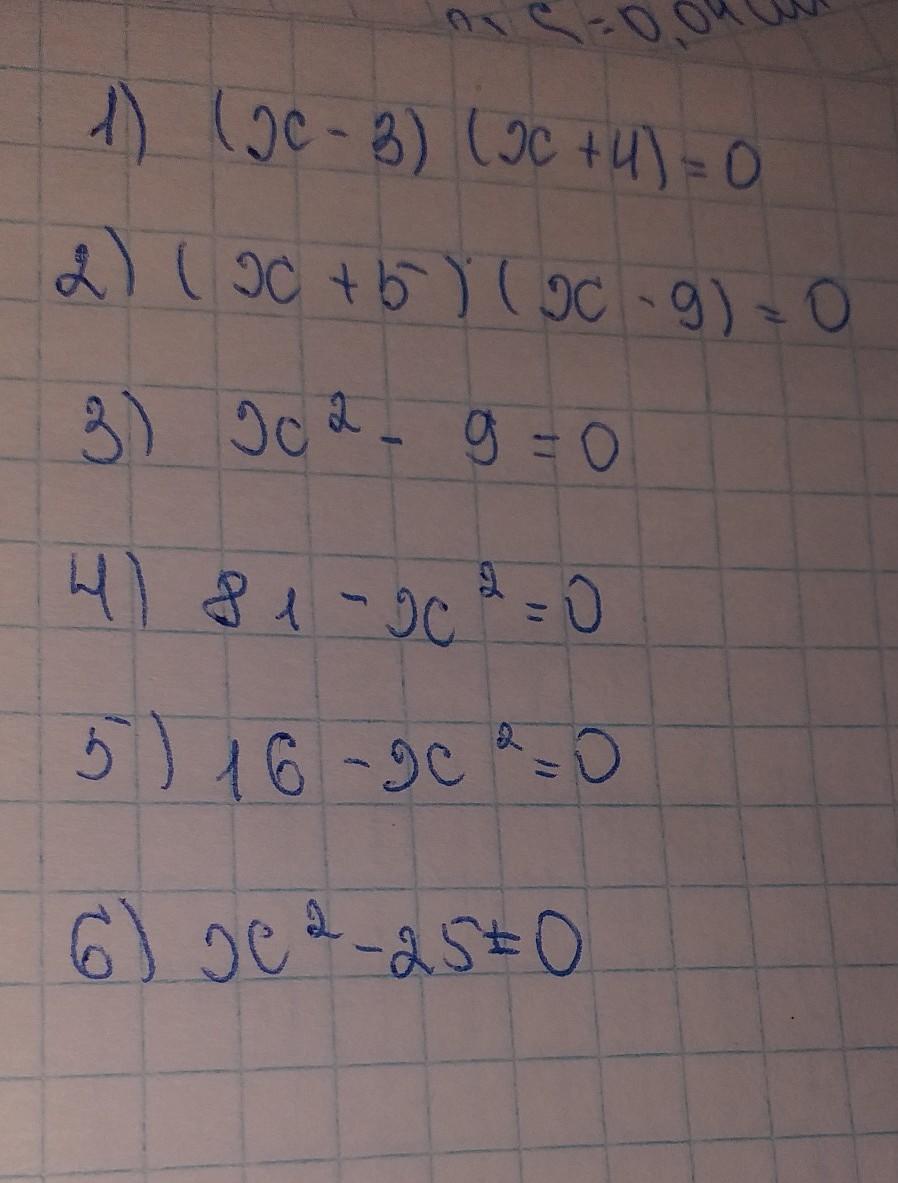 = 0,04
1) (x - 3) (x + 4) = 0
2) (x + 5) (x - 9) = 0
3) x² - 9 = 0
4) 81 - x² = 0
5) 16 - x² = 0
6) x² - 25 = 0